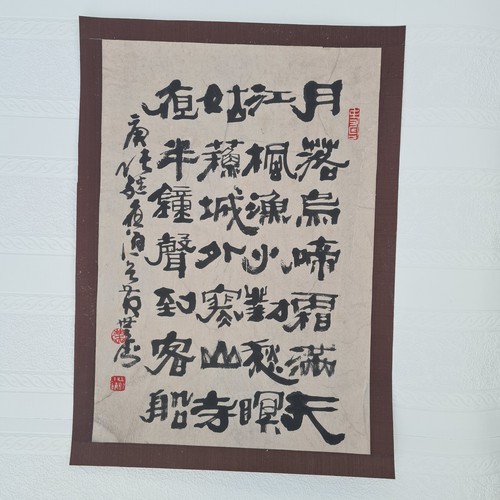 月落烏啼霜滿天
江楓漁火對愁瞑
姑蘇城外寒山寺
夜半鐘聲到客船
唐張繼夜泊